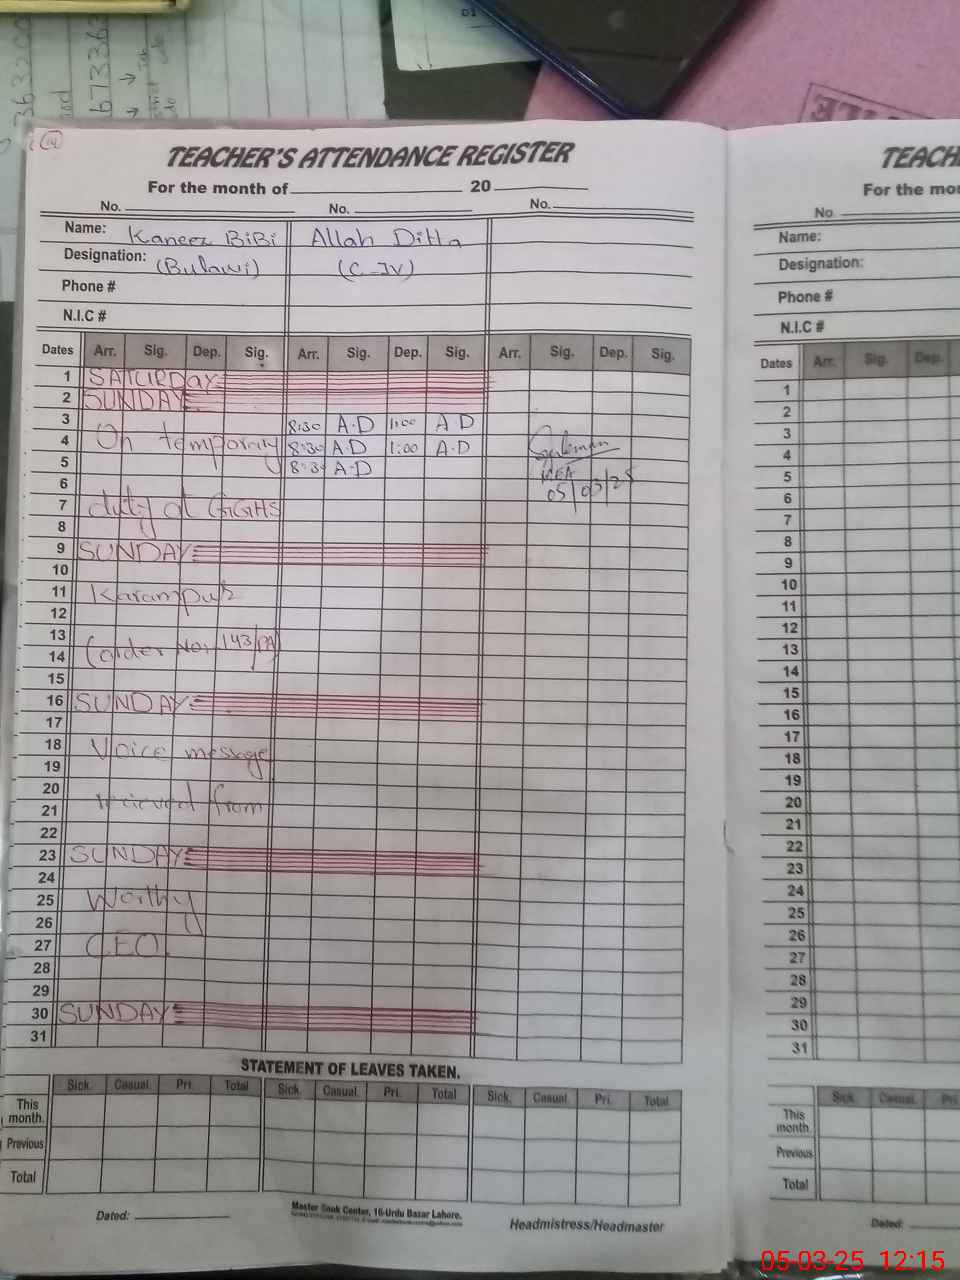 TEACHER'S ATTENDANCE REGISTER
For the month of 20
No. No. No.
Name: Kaneez BiBi Allah Ditta
Designation: (Bulawi) (C-IV)
Phone #
N.I.C #
Dates Arr. Sig. Dep. Sig. Arr. Sig. Dep. Sig. Arr. Sig. Dep. Sig.
1 SATURDAY
2 SUNDAY
3 8:30 A.D 1:00 A.D
4 On temporary 8:30 A.D 1:00 A.D
5 8:30 A.D
6 05/03/25
7 duty at GGHS
8
9 SUNDAY
10
11 Karampur
12
13 (order No. 143/PA)
14
15
16 SUNDAY
17
18 Voice message
19
20 recieved from
21
22
23 SUNDAY
24
25 Worthy
26
27 CEO.
28
29
30 SUNDAY
31
STATEMENT OF LEAVES TAKEN.
Sick. Casual. Pri. Total Sick. Casual. Pri. Total Sick. Casual. Pri. Total
This month.
Previous
Total
Dated:
Master Book Center, 16-Urdu Bazar Lahore.
Headmistress/Headmaster
TEACH
For the mo
No.
Name:
Designation:
Phone #
N.I.C #
Dates Arr. Sig. Dep.
1
2
3
4
5
6
7
8
9
10
11
12
13
14
15
16
17
18
19
20
21
22
23
24
25
26
27
28
29
30
31
Sick. Casual. Pri
This month.
Previous
Total
Dated:
05-03-25 12:15